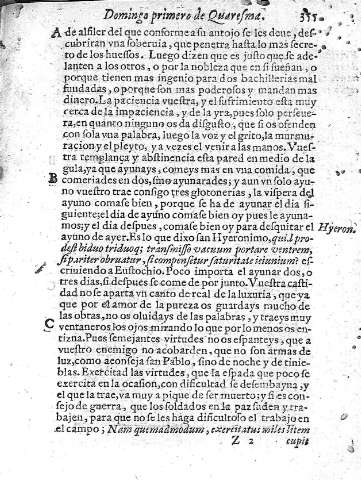 Domingo primero de Quaresma. 355
A de alfiler del que conforme a su antojo se les deue, des-
cubriran vna soberuia, que penetra hasta lo mas secre-
to de los huessos. Luego dizen que es justo que se ade-
lanten a los otros, o por la nobleza que en si sueñan, o
porque tienen mas ingenio para dos bachillerias mal
fundadas, o porque son mas poderosos y mandan mas
dinero. La paciencia vuestra, y el sufrimiento esta muy
cerca de la impaciencia, y de la yra, pues solo perseue-
ra, en quanto ninguno os da disgusto, que si os ofenden
con sola vna palabra, luego la voz y el grito, la murmu-
racion y el pleyto, y a vezes el venir a las manos. Vues-
tra templança y abstinencia esta pared en medio de la
gula, ya que ayunays, comeys mas en vna comida, que
B comeriades en dos, sino ayunarades; y aun vn solo ayu-
no vuestro trae consigo tres glotonerias, la vispera del
ayuno comase bien, porque se ha de ayunar el dia si-
guiente; el dia de ayuno comase bien oy pues le ayuna-
mos; y el dia despues, comase bien para desquitar el
ayuno de ayer. Es lo que dixo san Hyeronimo, quid pro-
Hyeron.
dest biduo triduoq; transmisso vacuum portare ventrem,
si pariter obruatur, si compensetur saturitate ieiunium? es-
criuiendo a Eustochio. Poco importa el ayunar dos, o
tres dias, si despues se come de por junto. Vuestra casti-
dad no se aparta vn canto de real de la luxuria, que ya
que por el amor de la pureza os guardays mucho de
las obras, no os oluidays de las palabras, y traeys muy
C ventaneros los ojos mirando lo que por lo menos os en-
tizna. Pues semejantes virtudes no os espanteys, que a
vuestro enemigo no acobarden, que no son armas de
luz, como aconseja san Pablo, sino de noche y de tinie-
blas. Exercitad las virtudes, que la espada que poco se
exercita en la ocasion, con dificultad se desembayna, y
el que la trae, va muy a pique de ser muerto; y si es con-
sejo de guerra, que los soldados en la paz suden y tra-
bajen, para que no se les haga dificultoso el trabajo en
el campo; Nam quemadmodum, exercitatus miles litem
Z 2 cupit